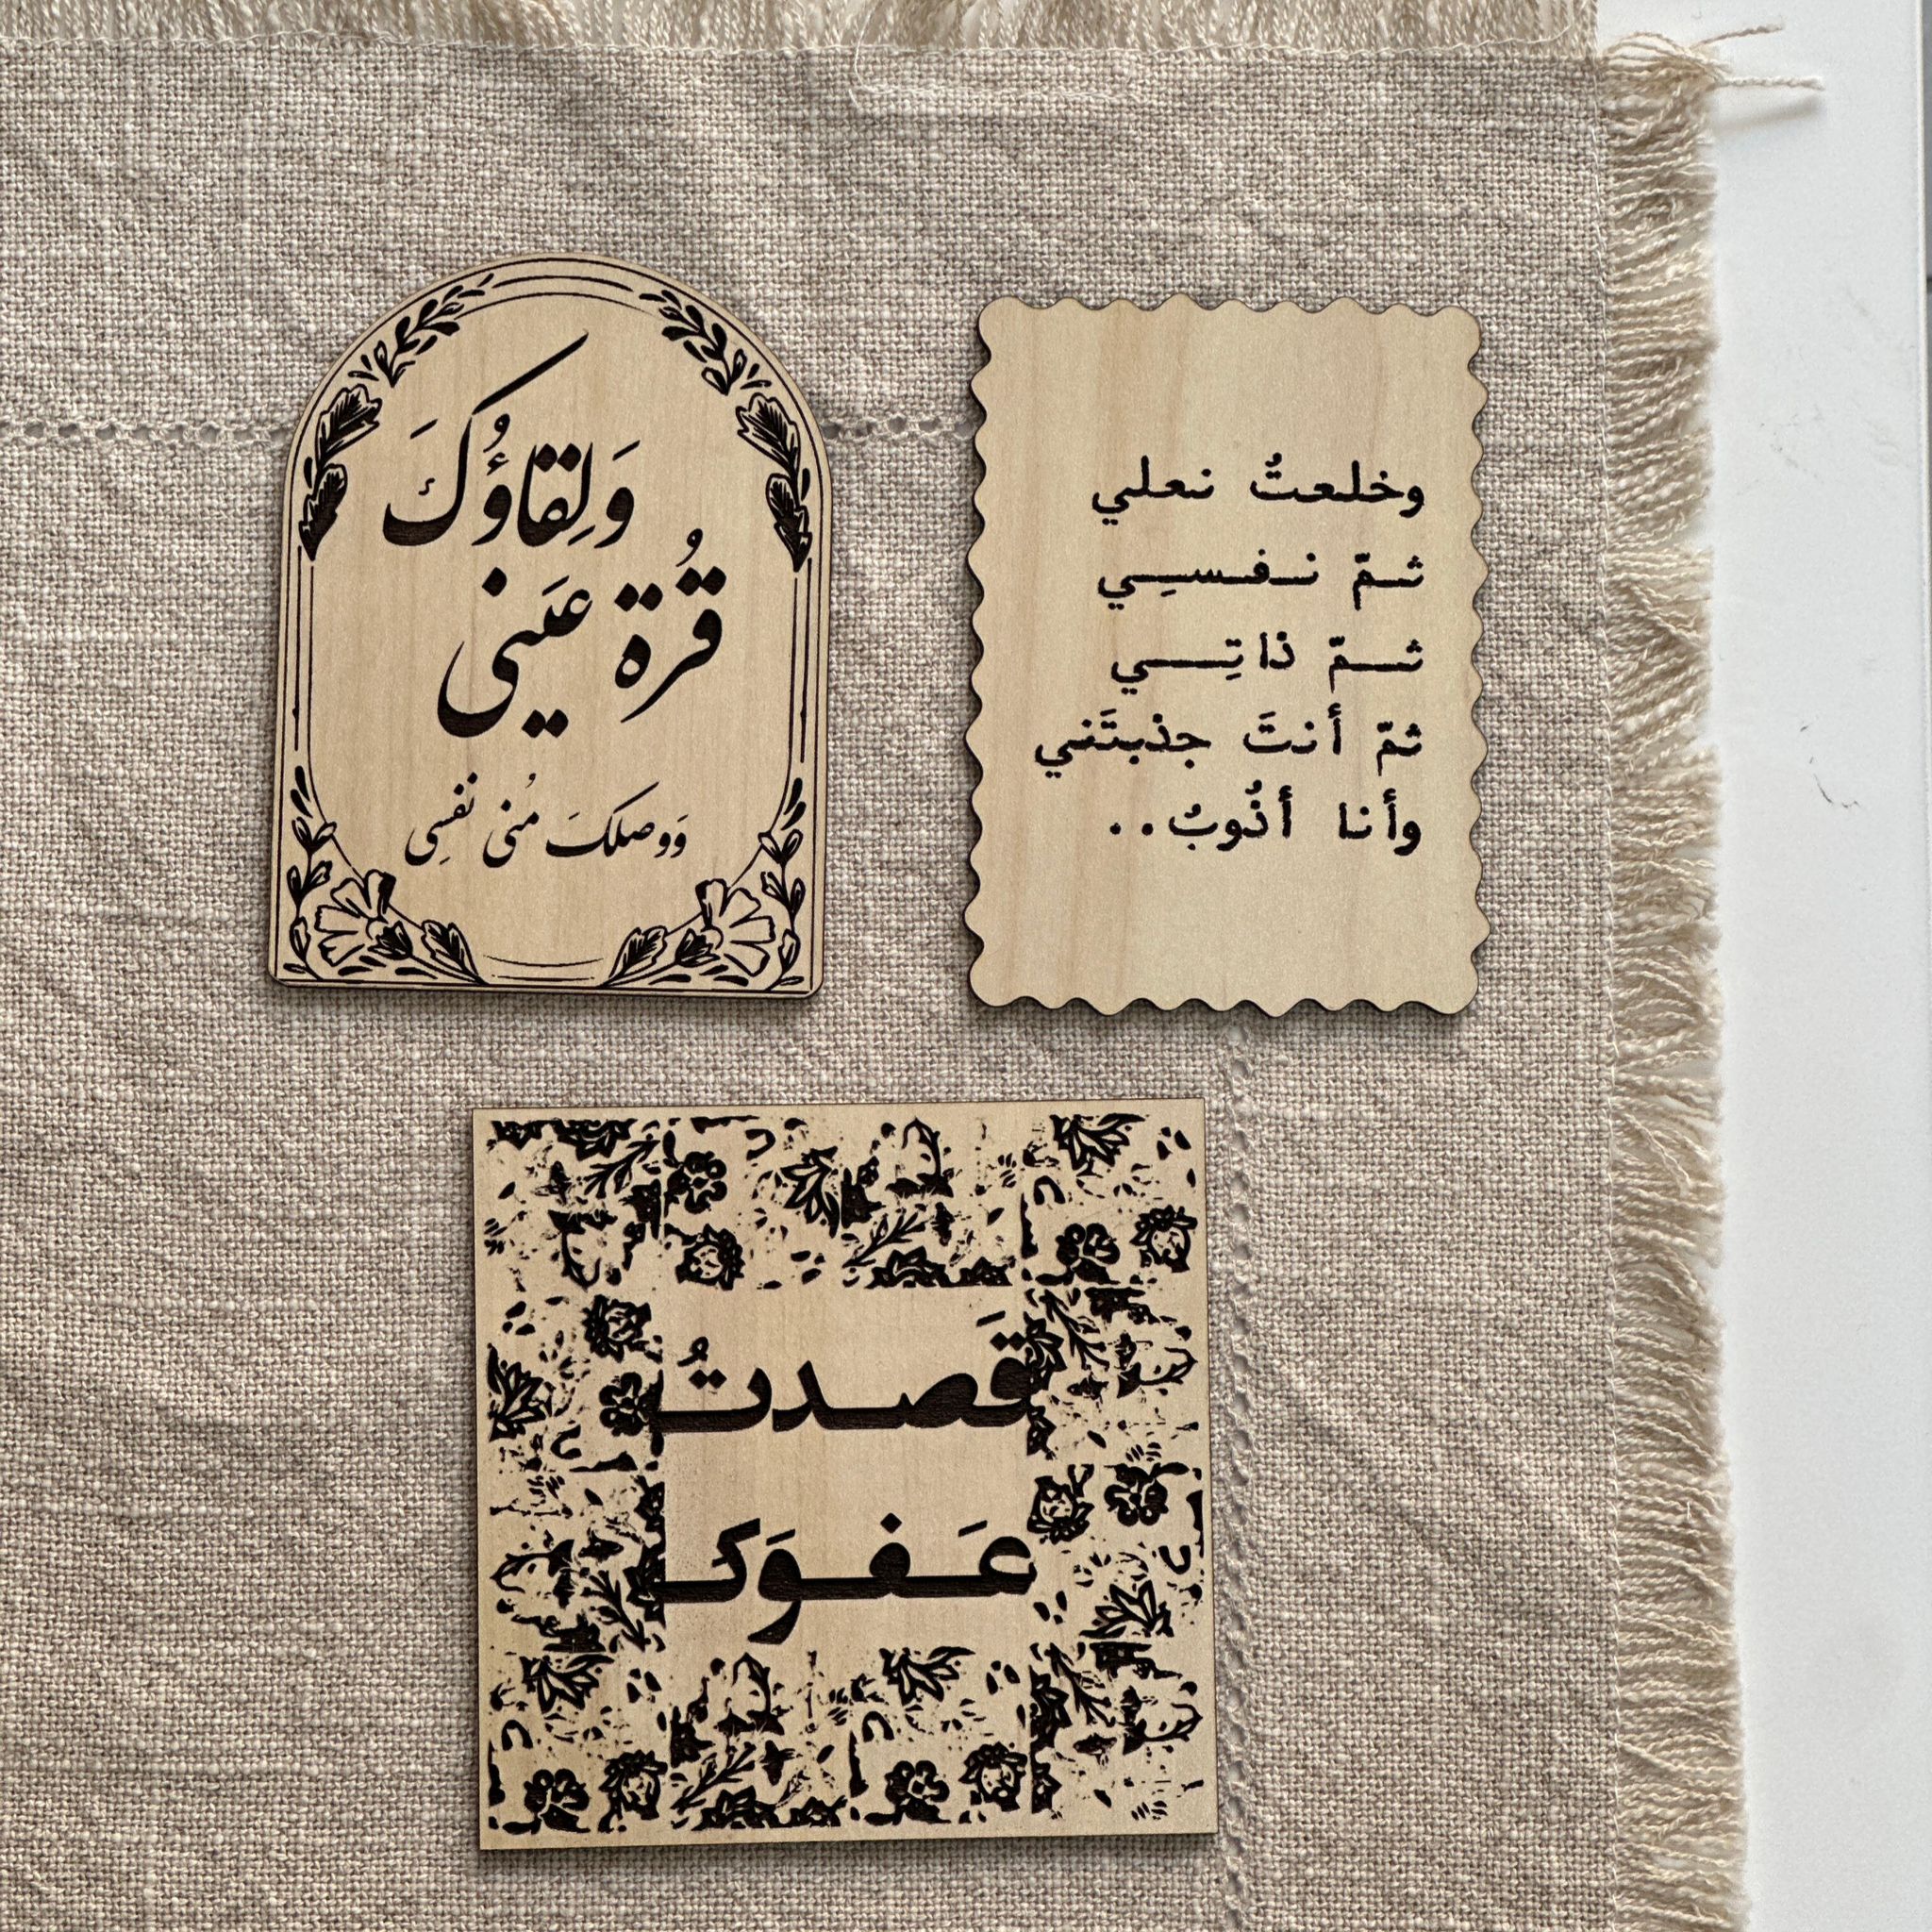 وَلِقاؤُكَ
قُرة عَيني
وَوصلكَ مُنى نفسِي
وخلعتُ نعلي
ثمّ نفسِي
ثمّ ذاتِي
ثمّ أنتَ جذبتَني
وأنا أذُوبُ..
قَصدتُ
عَفوَك